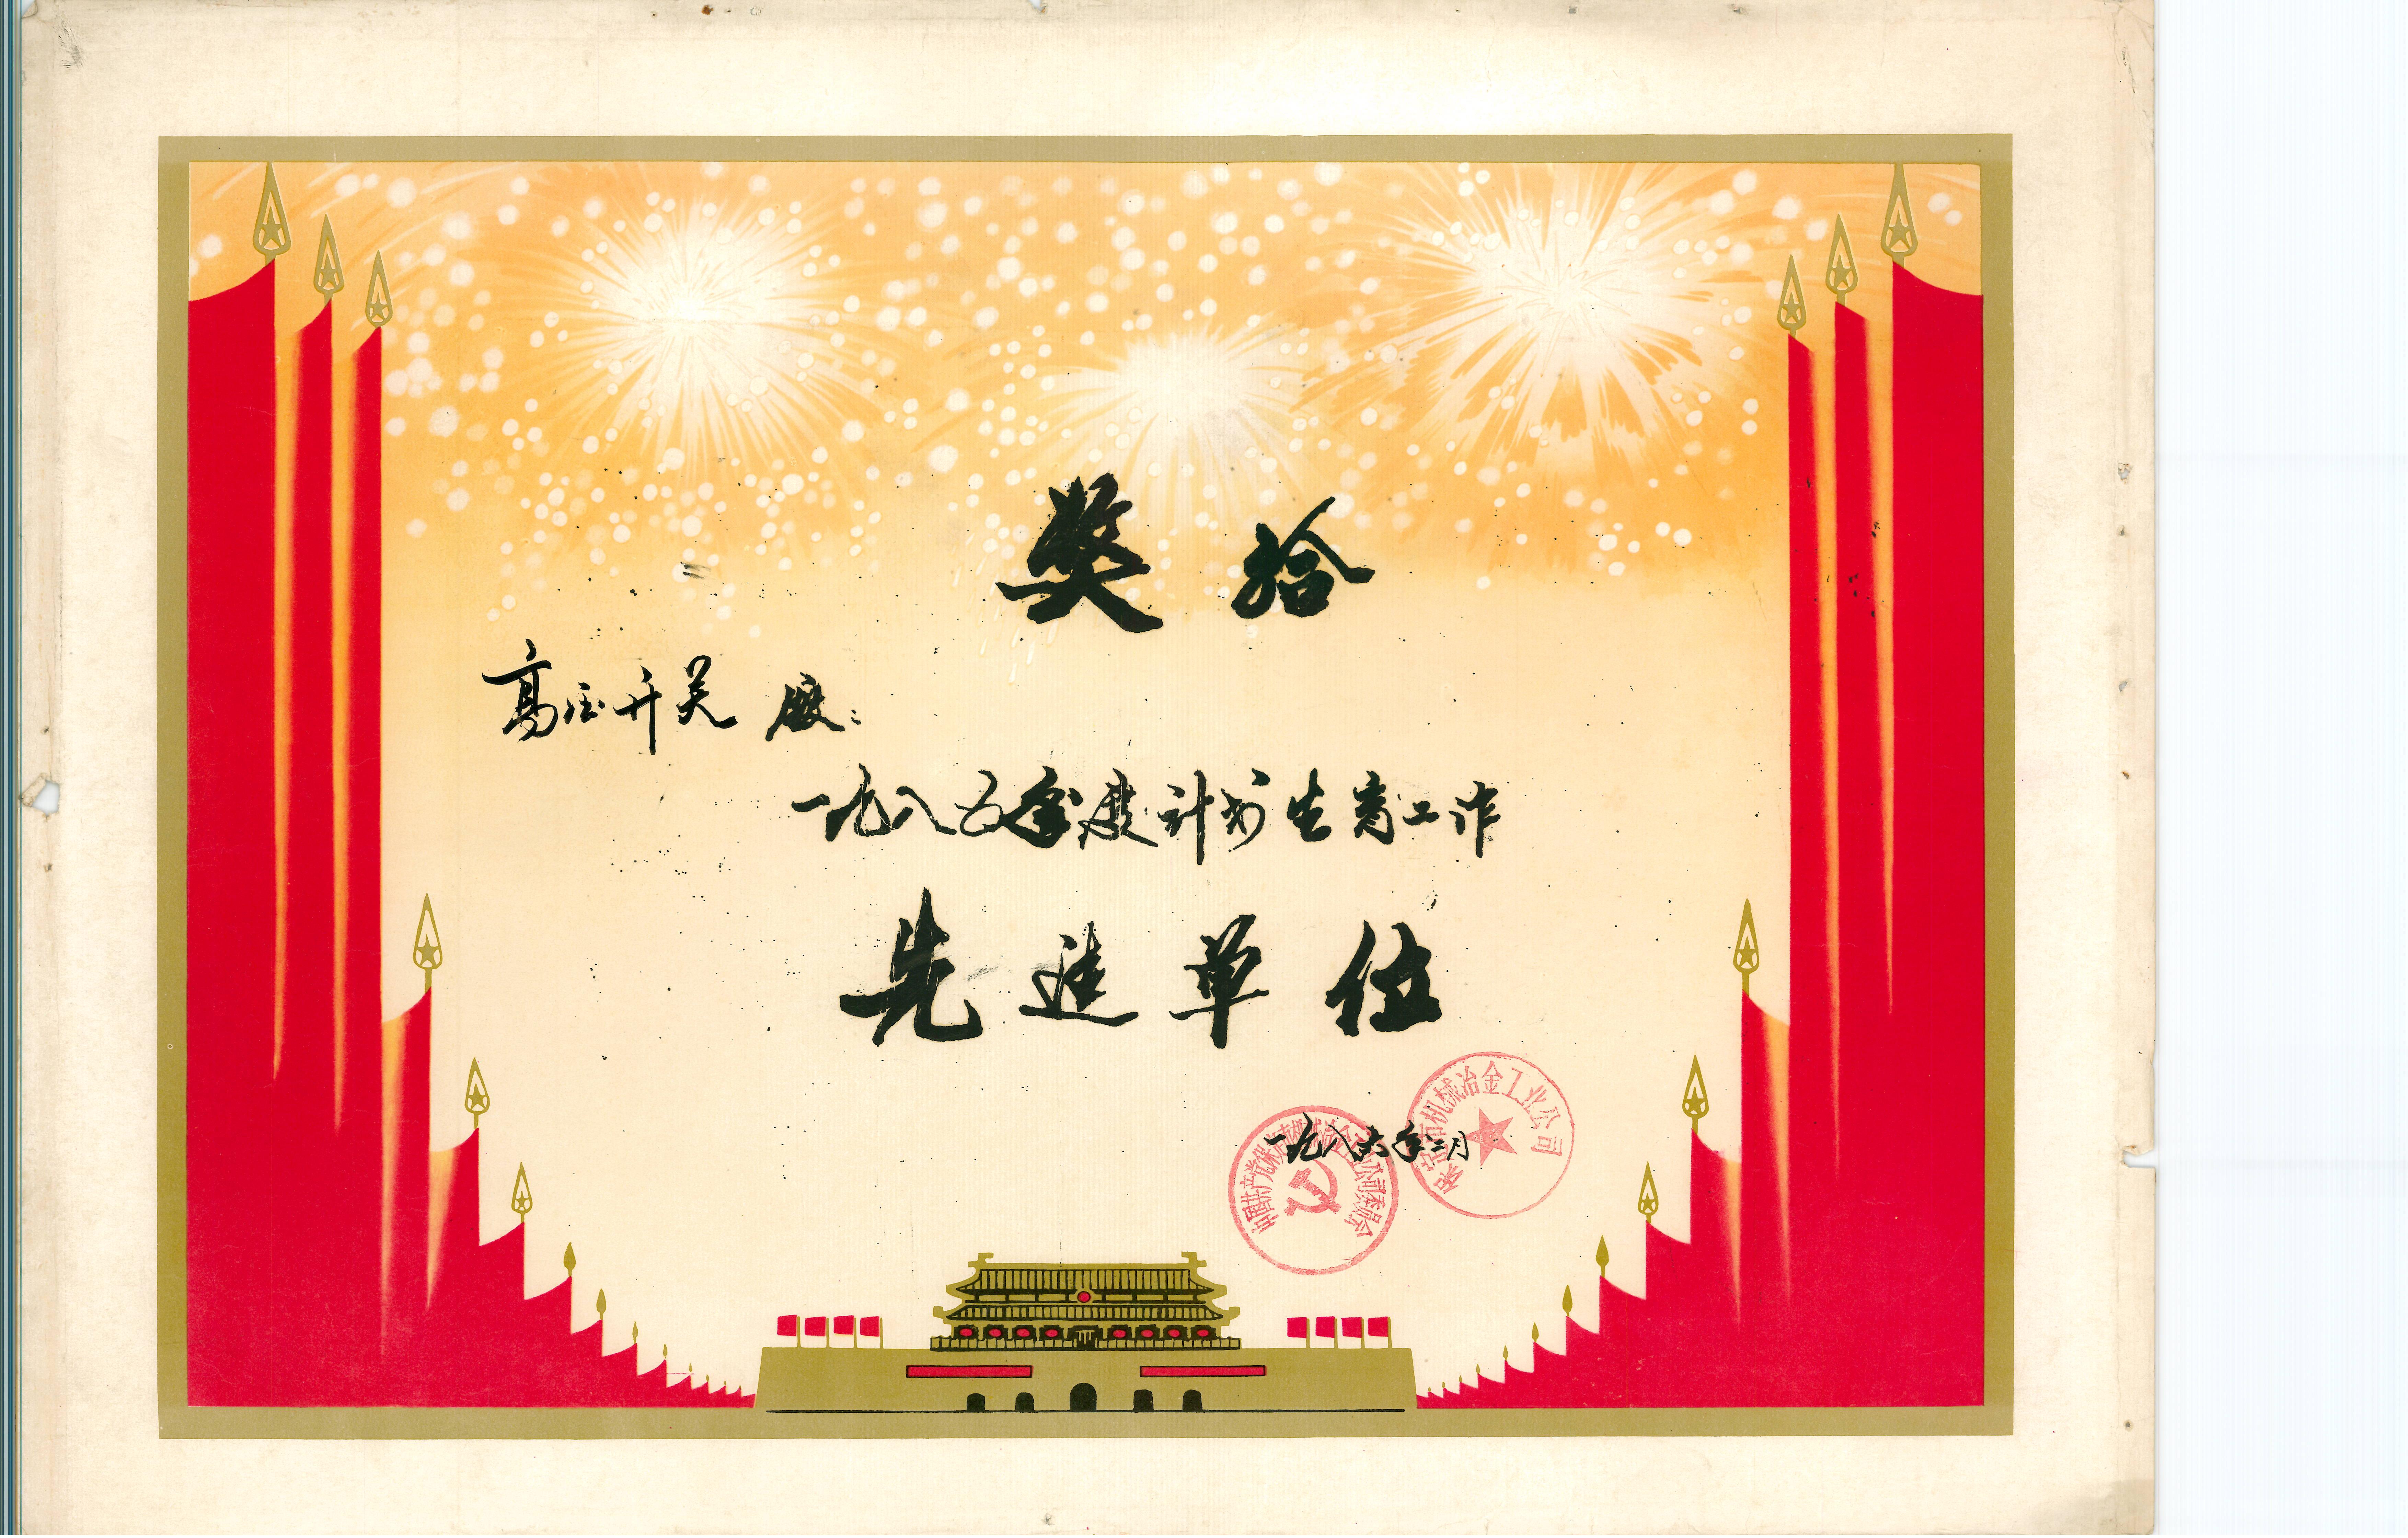 奖给
高压开关厂：
一九八五年度计划生育工作
先进单位
一九八六年二月
保定市机械冶金工业公司
中国共产党保定市机械冶金工业公司委员会